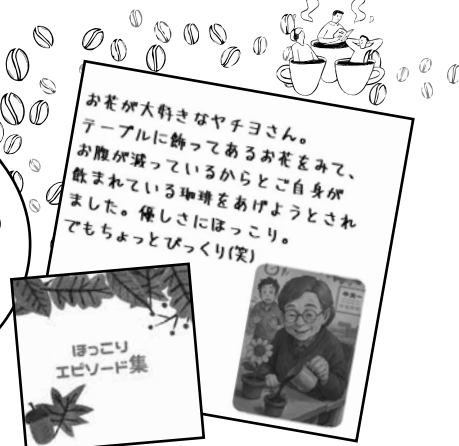 お花が大好きなヤチヨさん。
テーブルに飾ってあるお花をみて、
お腹が減っているからとご自身が
飲まれている珈琲をあげようとされ
ました。優しさにほっこり。
でもちょっとびっくり(笑)
ほっこり
エピソード集